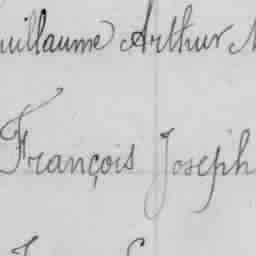 uillaume Arthur
François Joseph